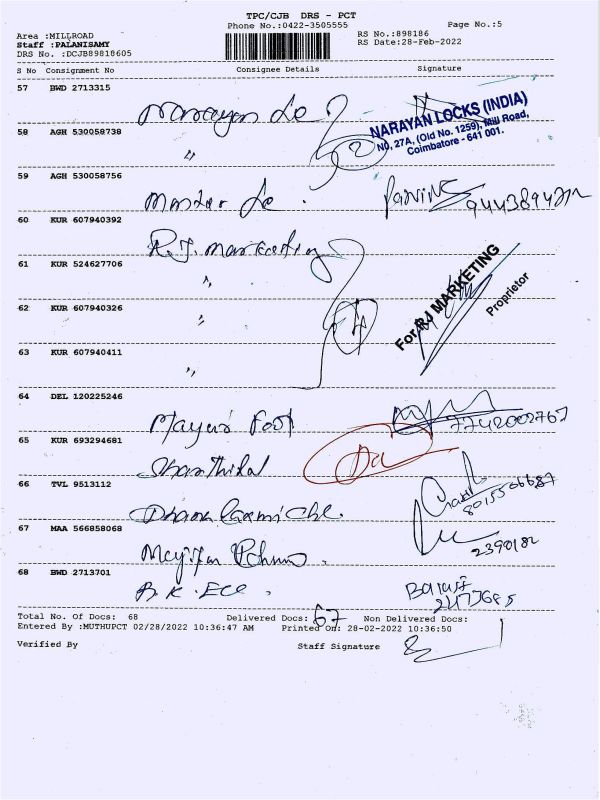 TPC/CJB DRS - PCT
Phone No.:0422-3505555
Page No.:5
Area :MILLROAD
Staff :PALANISAMY
DRS No. :DCJB89818605
RS No.:898186
RS Date:28-Feb-2022
S No Consignment No Consignee Details Signature
57 BWD 2713315
Narayan Lo
58 AGH 530058738
"
2
NARAYAN LOCKS (INDIA)
NO, 27A, (Old No. 1259), Mill Road,
Coimbatore - 641 001.
59 AGH 530058756
Master Lo.
60 KUR 607940392
R.J. Marketing
61 KUR 524627706
"
62 KUR 607940326
"
4
For RJ MARKETING
Proprietor
63 KUR 607940411
"
64 DEL 120225246
Mayuri Foot
7742002767
65 KUR 693294681
Shanthilal
66 TVL 9513112
Dhana Laxmi Che.
8015506687
67 MAA 566858068
2390182
68 BWD 2713701
B.K. Ece.
Balaji
Total No. Of Docs: 68 Delivered Docs: 67 Non Delivered Docs:
Entered By :MUTHUPCT 02/28/2022 10:36:47 AM Printed On: 28-02-2022 10:36:50
Verified By Staff Signature